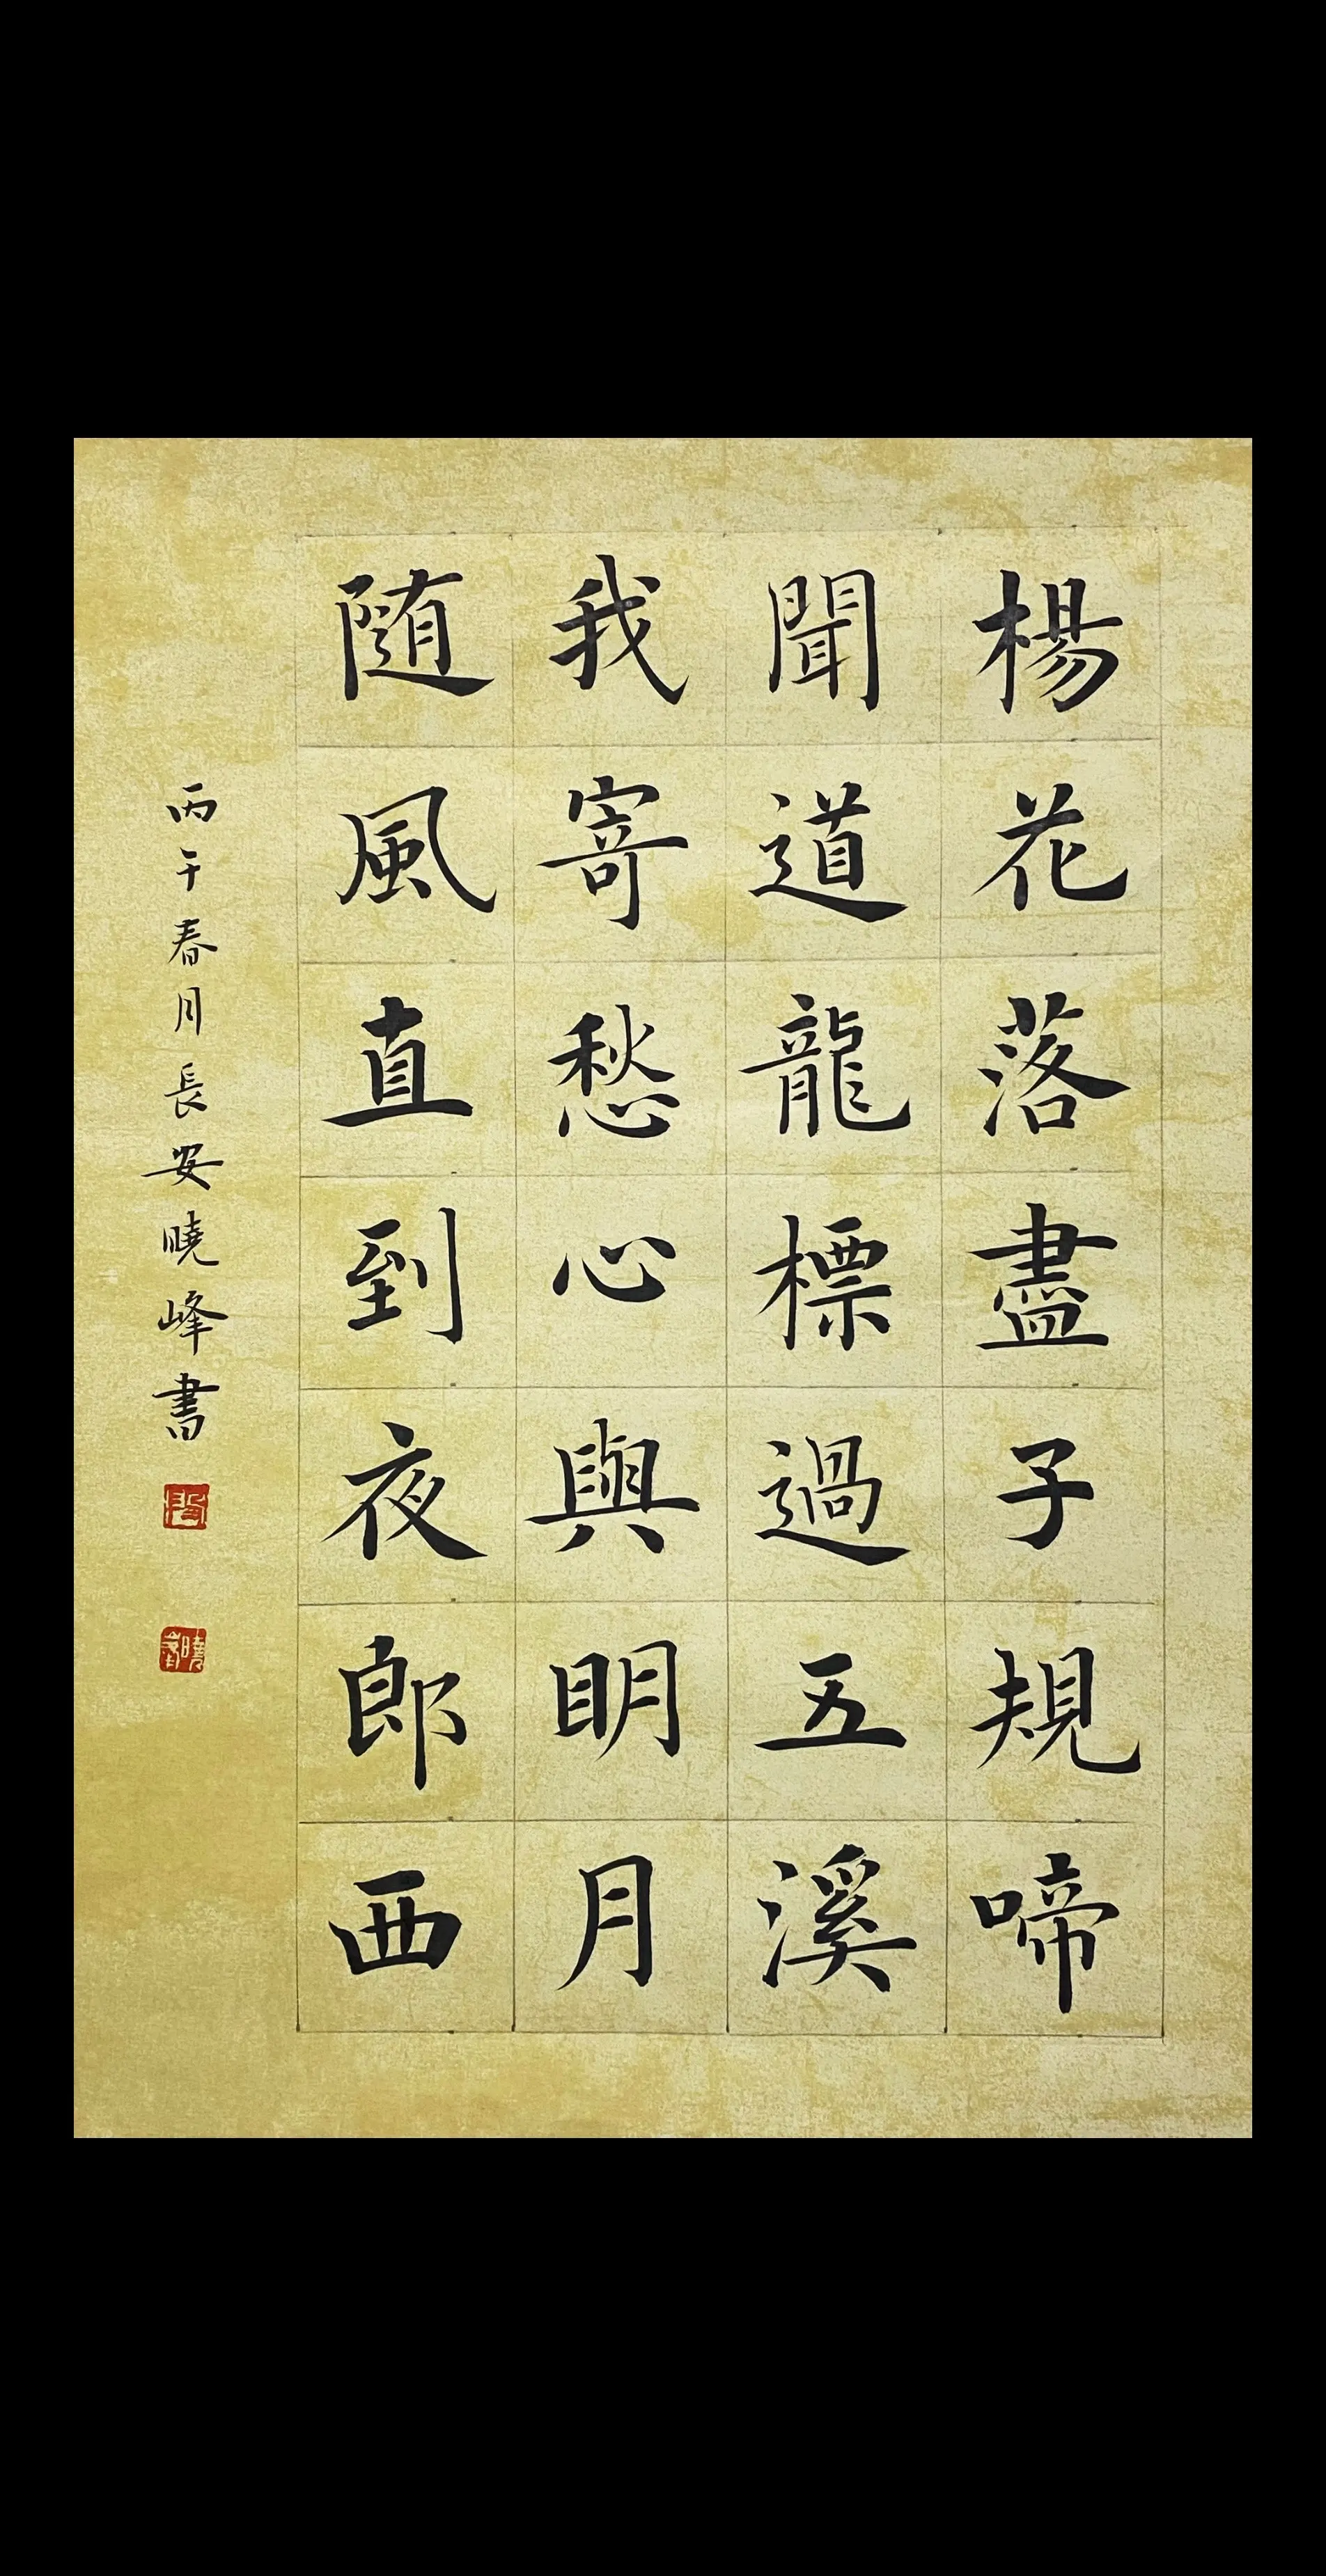 楊花落盡子規啼
聞道龍標過五溪
我寄愁心與明月
随風直到夜郎西
丙午春月長安曉峰書